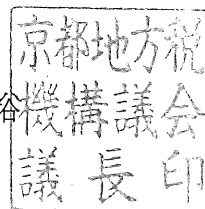 京都地方税
谷機構議会
議長印